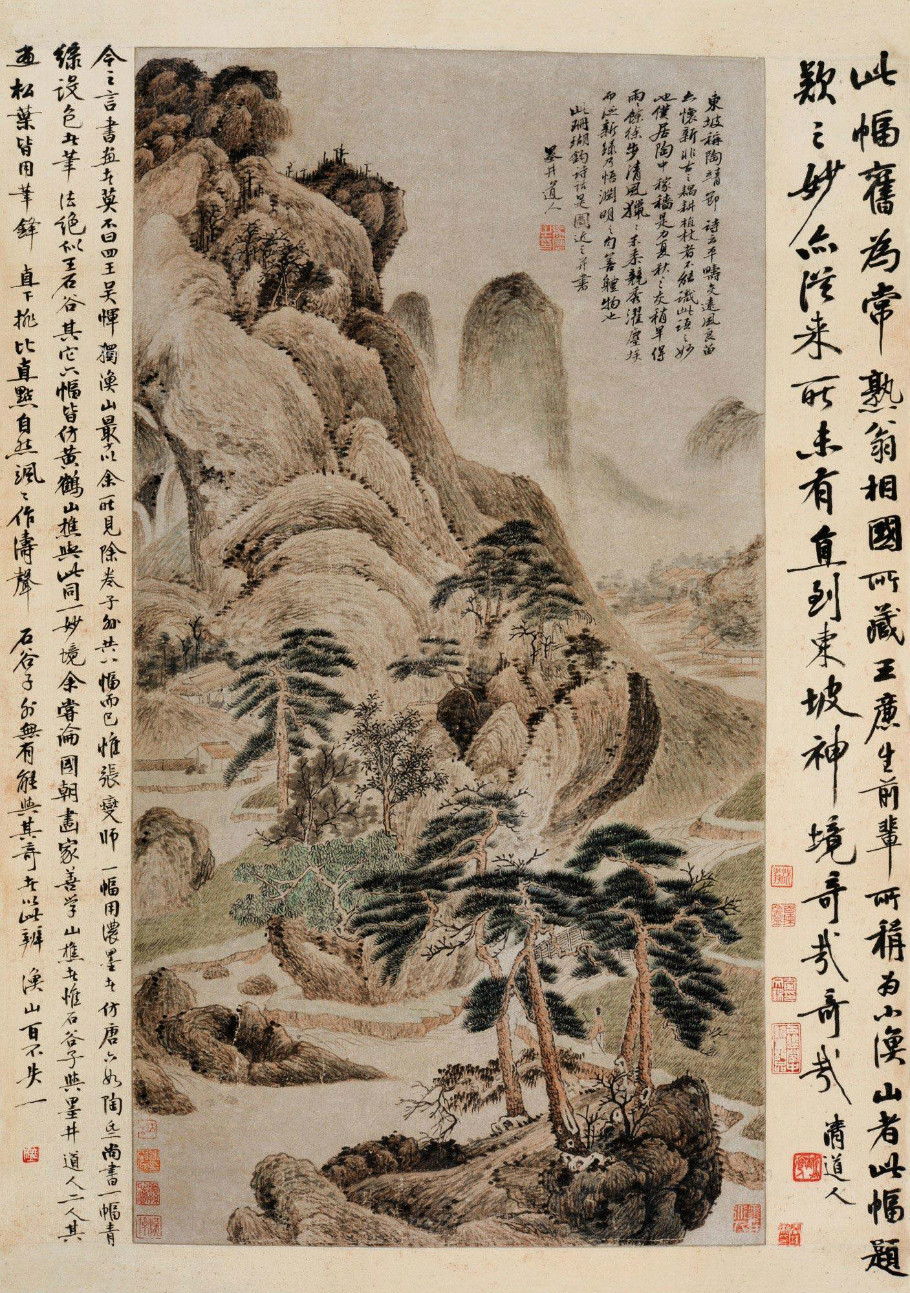 此幅舊為常熟翁相國所藏王廉生前輩所稱為小漁山者此幅題
款之妙亦從來所未有直到東坡神境奇哉奇哉 清道人
東坡稱陶靖節詩云平疇交遠風良苗
亦懷新非古之耦耕植杖者不能識此語之妙
也僕居陶中稼穡是力夏秋之交稍旱得
雨雨餘徐步清風獵獵禾黍競秀濯塵埃
而泛新綠乃悟淵明之句善體物也
此珊瑚鉤詩話是圖近之并書
墨井道人
今之言書畫者莫不曰四王吳惲獨漁山最少余所見除卷子外共八幅而已惟張燮師一幅用濃墨者仿唐六如陶亝尚書一幅青
綠設色者筆法絕似王石谷其它六幅皆仿黃鶴山樵與此同一妙境余嘗論國朝畫家善學山樵者惟石谷子與墨井道人二人其
畫松葉皆用筆鋒直下排比直點自然颯颯作濤聲石谷子外無有能與其奇者以此辨漁山百不失一